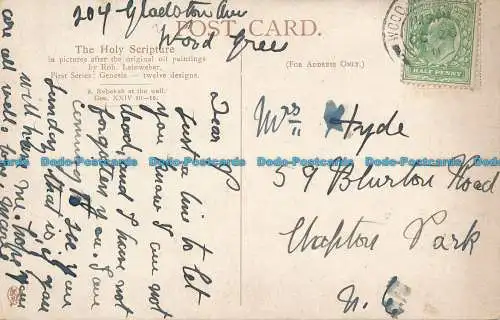 204 Gladston Ave
Wood Gree
POST CARD.
The Holy Scripture
in pictures after the original oil paintings
by Rob. Leinweber.
First Series: Genesis — twelve designs.
8. Rebekah at the well.
Gen. XXIV 10—18.
(FOR ADDRESS ONLY.)
WOOD
HALF PENNY
Dear
Just a line to let
you know I am not
dead, and I have not
forgotten you. I am
coming to see you
Sunday that is if you
will have me. hope you
are all well. love,
Mrs Hyde
59 Blurton Road
Clapton Park
N.E
Dado-Postcards Dado-Postcards Dado-Postcards Dado-Postcards Dado-Postcards